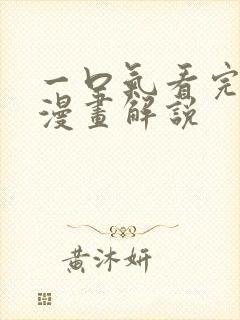 一口氣看完
漫畫解說
黃沐妍